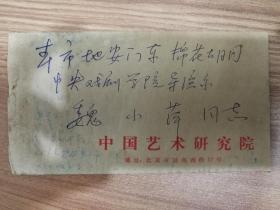 本市地安门东棉花胡同
中央戏剧学院导演系
魏小萍同志
中国艺术研究院
地址:北京市